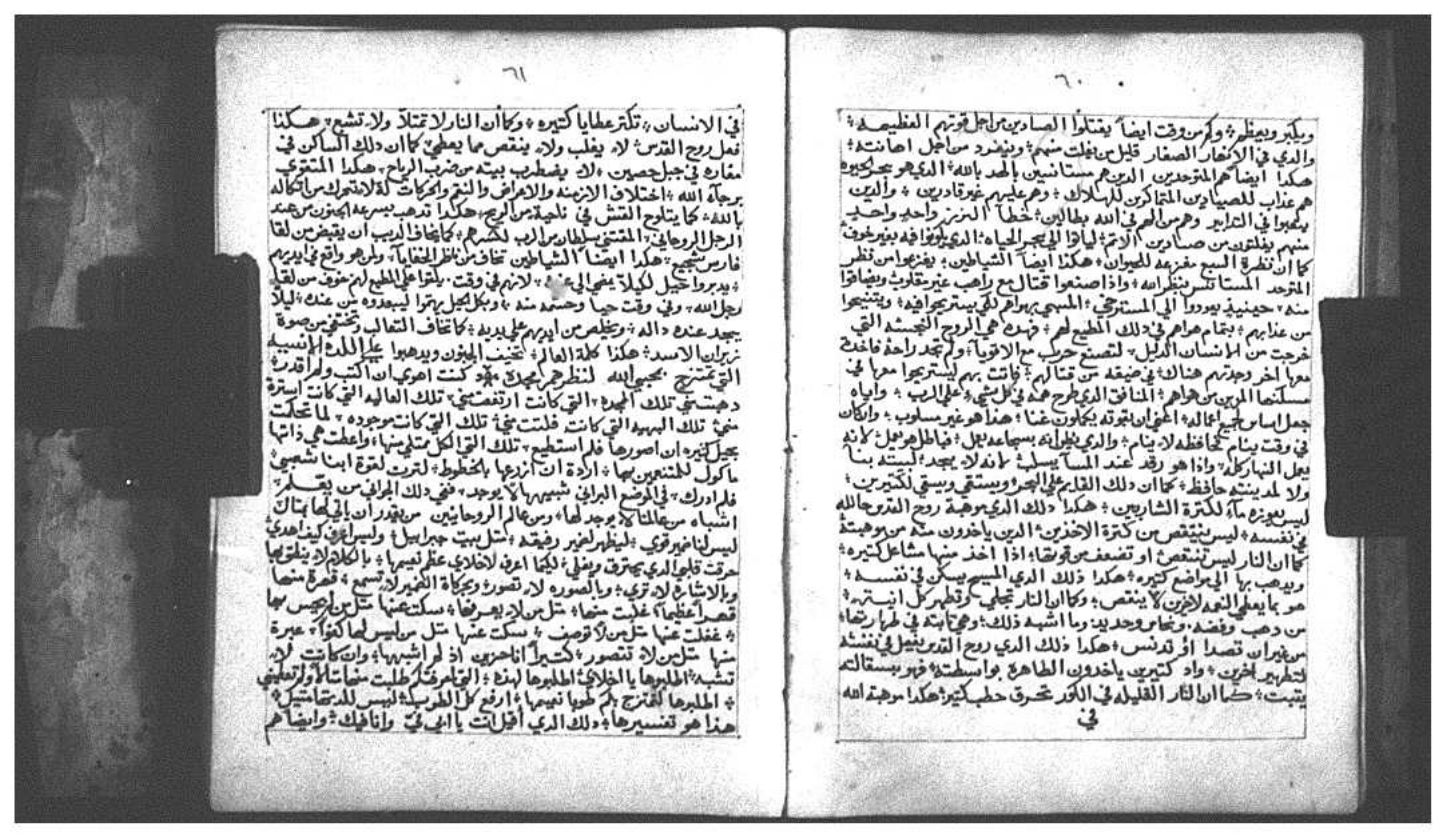 ٦٠
ويكبر ويعظم ؛ وكم من وقت ايضاً يقتلوا الصيادين من اجل قوتهم العظيمه ؛
والدي في الانهار الصغار قليل من يفلت منهم ؛ من اجل اهانته ؛
هكدا ايضاً هم المتوحدين الدين هم مستانسين بالله ؛ الدي هو بحر الحيوه
هم عداب للصيادين المتماكرين للهلاك ؛ وهم عليهم غير قادرين ؛ والدين
في التدابير وهم من الهم في الله بطالين ؛ خطا النزيز واحد واحد
منهم يفلتون من صيادين الاتم ؛ لياتوا الي بحر الحياه ؛ الدي فيه بغير خوف ؛
كما ان نظرة السبع مفزعه للحيوان ؛ هكدا ايضاً الشياطين ؛ يفزعوا من نظر
المتوحد المستانس بنظر الله ؛ وادا صنعوا قتال مع راهب غير مغلوب
منه ؛ حينيد يعودوا الي المسترخي ؛ المسبي بهواهم لكي يستريحوا فيه ؛
من عدابهم ؛ بتمام هواهم في دلك المطيع لهم ؛ فهده هي الروح النجسه التي
خرجت من الانسان ؛ لتصنع حرب مع الاقويا ؛ ولم تجد راحة فاخدت
معها اخر وحدتهم هناك ؛ في ضيقه من قتالهم ؛ فاتت بهم ليستريحوا معها في
مسكنها من هواهم ؛ الدي طرح همه في كل شي ؛ علي الرب ؛ واياه
جعل اساس لجميع اعماله ؛ هدا هو غير مسلوب ؛ وان كان
في وقت ينام فحافظه لا ينام ؛ والدي يظن انه بشجاعه يعمل ؛ فباطل هو يعمل ؛ لانه
يعمل النهار كله ؛ وادا هو رقد عند المسا يسلب ؛ لانه لا يجد لبيته بنا ؛
ولا لمدينته حافظ ؛ كما ان دلك القايم علي البحر ؛ ويستقي ويسقي لكتيرين ؛
ليس يعوزه ماء لكترة الشاربين ؛ هكدا دلك الدي موهبة روح القدس حاله
في نفسه ؛ ليس ينتقص من كترة الاخدين ؛ الدين ياخدون منه من موهبته ؛
كما ان النار ليس تنتقص او تضعف من قوتها ؛ ادا اخد منها مشاعل كتيره ؛
ويدهب بها الي مواضع كتيره ؛ هكدا دلك الدي المسيح يسكن في نفسه ؛
هو بما يعطي النعمه لاخرين لا ينقص ؛ وكما ان النار تجلي وتطهر كل انيه ؛
من دهب وفضه ونحاس وحديد وما اشبه دلك ؛ وهي تابته في طهارتها ؛
من غير ان تصدا او تدنس ؛ هكدا دلك الدي روح القدس يفعل في نفسه
لتطهير اخرين ؛ واد كتيرين ياخدون الطاهرة بواسطته ؛ فهو
يتبت ؛ كما ان النار القليله في الكور تحرق حطب كتير ؛ هكدا موهبة الله
في
٦١
في الانسان ؛ تكتر عطايا كتيره ؛ وكما ان النار لا تمتلا ولا تشبع ؛ هكدا
فعل روح القدس ؛ لا يغلب ولا ينقص مما يعطي ؛ كما ان دلك الساكن في
مغاره في جبل حصين ؛ لا يضطرب بيته من ضرب الرياح ؛ هكدا المتقوي
برجاء الله ؛ اختلاف الازمنه والاعراض والحركات له لا تتحرك من اتكاله
بالله ؛ كما يتلوح القش في ناحية من الريح ؛ هكدا تدهب بسرعه الجنون من عند
الرجل الروحاني ؛ المقتني سلطان من الرب لكسرهم ؛ كما يخاف الديب ان يقبض من لقا
فارس شجيع ؛ هكدا ايضاً الشياطين تخاف من ناظر الخفايا ؛ ولمن هو واقع في ايديهم
يدبروا حيل لكيلا يمضي الي ؛ لانهم في وقت يلقوا علي المطيع لهم خوف من لقا
رجل الله ؛ وفي وقت حيا وحشمه منه ؛ وبكل الحيل يهتموا ليبعدوه من عنده ؛ ليلا
يجد عنده داله ؛ ويخلص من ايديهم علي يديه ؛ كما تخاف التعالب وتختفي من صوت
زيران الاسد ؛ هكدا كلمة العالم ؛ تخيف الجنون ويدهبوا علي اللده الانسيه
التي تمتزج بمحبي الله لنظرهم امجده ؛ كنت اهوي ان اكتب ولم اقدر ؛
دهبت مني تلك المجده ؛ التي كانت ارتفعت مني ؛ تلك العاليه التي كانت اسرة
مني ؛ تلك البهيه التي كانت فلتت مني ؛ تلك التي كانت موجوده ؛ لما تحكت
بحيل كتيره ان اصورها فلم استطيع ؛ تلك التي الكل ممتلي منها ؛ واعطت هي داتها
ماكول للمتنعمين بها ؛ اردة ان ازرعها بالخطوط ؛ لترت لقوة ابنا شعبي ؛
فلم ادرك ؛ في الموضع البراني شبيهها لا يوجد ؛ فمن دلك الجواني من يقدر ؛
اشباه من عالمنا لا يوجد لها ؛ ومن عالم الروحانيين من يقدر ان ياتي لها بمتال
ليس لنا ضمير قوي ؛ ليظهر لغير رفيقه ؛ متل بيت جبراييل ؛ وليس اعرف كيف اهدي
حرقت قلبي الدي يحترق ويغلي ؛ لكيما اعرف لاخلاي عظم نعيمها ؛ بالكلام لا ينطق بها
وبالاشاره لا تري ؛ وبالصوره لا تصور ؛ وبحركاة الضمير لا تسمع ؛ قهرة منها
قهراً عظيماً ؛ غلبت منها ؛ متل من لا يعرفها ؛ سكت عنها متل من لم يحس بها
؛ غفلت عنها متل من لا توصف ؛ سكت عنها متل من ليس لها كفواً ؛ عبرة
منها متل من لا تتصور ؛ كتيراً انا حزين اد لم اشبهها ؛ وان كانت لا
تشبه ؛ اطلبوها يا اخلاي اطلبوها لهده ؛
؛ اطلبوها لتمتزج لكم طوبا نعيمها ؛ ارفع كل الطروب ؛ ليس للدتها متيل ؛
هدا هو تفسيرها ؛ دلك الدي اقبل ات يا ابي في وانا فيك ؛ وايضاً هم